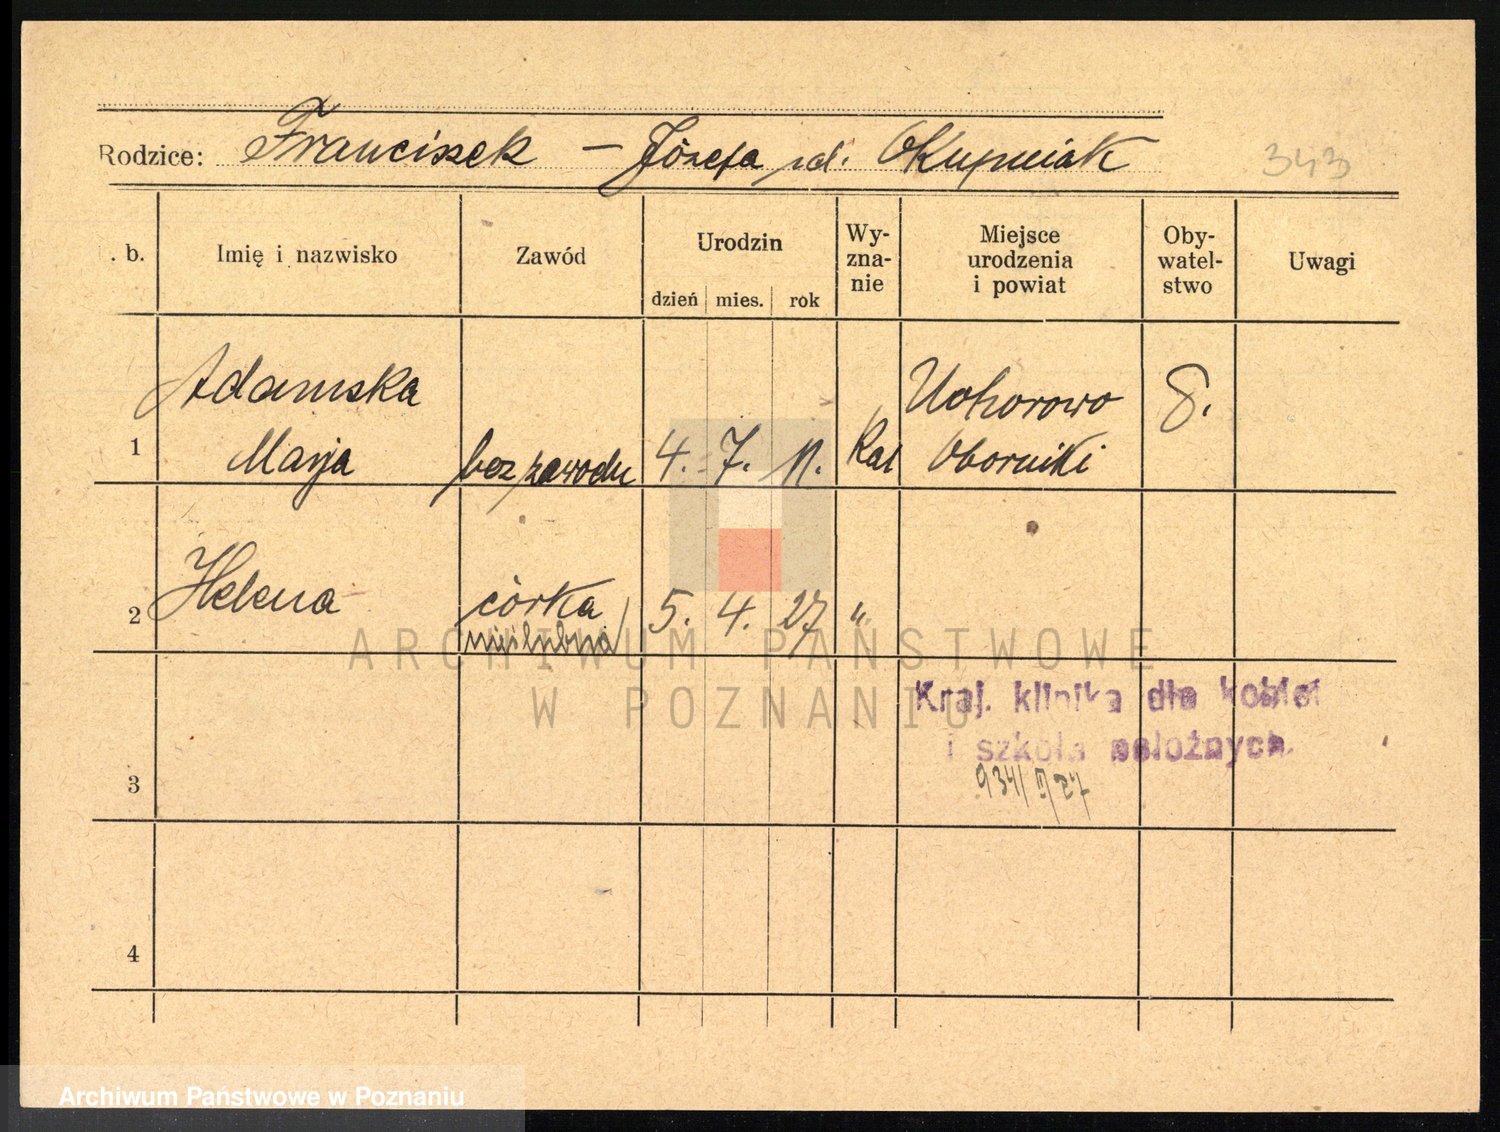 Rodzice: Franciszek – Józefa zd. Okupniak 343
. b. Imię i nazwisko Zawód Urodzin Wy-zna-nie Miejsce urodzenia i powiat Oby-watel-stwo Uwagi
dzień mies. rok
Adamska Uchorowo P.
1 Marja bez zawodu 4. 7. 11. Kat Oborniki
2 Helena córka 5. 4. 27 "
nieślubna
ARCHIWUM PAŃSTWOWE
W POZNANIU
Kraj. klinika dla kobiet
i szkoła położnych.
3 934/27
4
Archiwum Państwowe w Poznaniu